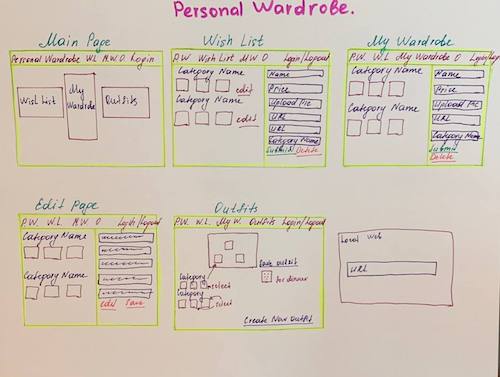 Personal Wardrobe.
Main Page
Personal Wardrobe W.L M.W. O Login
Wish List
My Wardrobe
Outfits
Wish List
P.W. Wish List M.W O Login/Logout
Category Name
edit
Category Name
edit
Name
Price
Upload Pic
URL
URL
Category Name
Submit Delete
My Wardrobe
P.W. W.L My Wardrobe O Login/Lo
Category Name
Category Name
Name
Price
Upload Pic
URL
Category Name
Submit
Delete
Edit Page
P.W. W.L M.W. O Login/Logout
Category Name
Category Name
edit Save
Outfits
P.W. W.L. My W. Outfits Login/Logout
Category
select
Category
select
outfit
for dinner
Create New Outfit
Local Web
URL